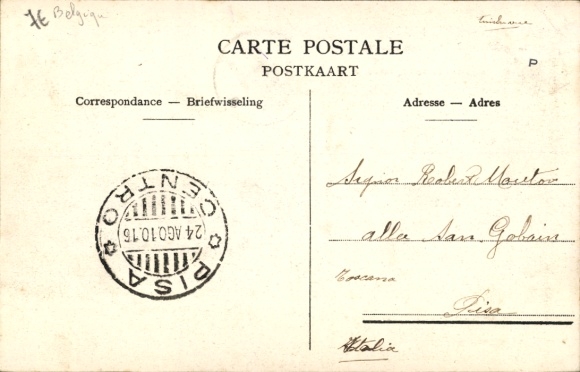 7€ Belgique
CARTE POSTALE
POSTKAART
P
Correspondance — Briefwisseling
Adresse — Adres
Signor Robert
alla San Gobain
Toscana
Pisa
Italia
PISA CENTRO
24 AGO 10.16